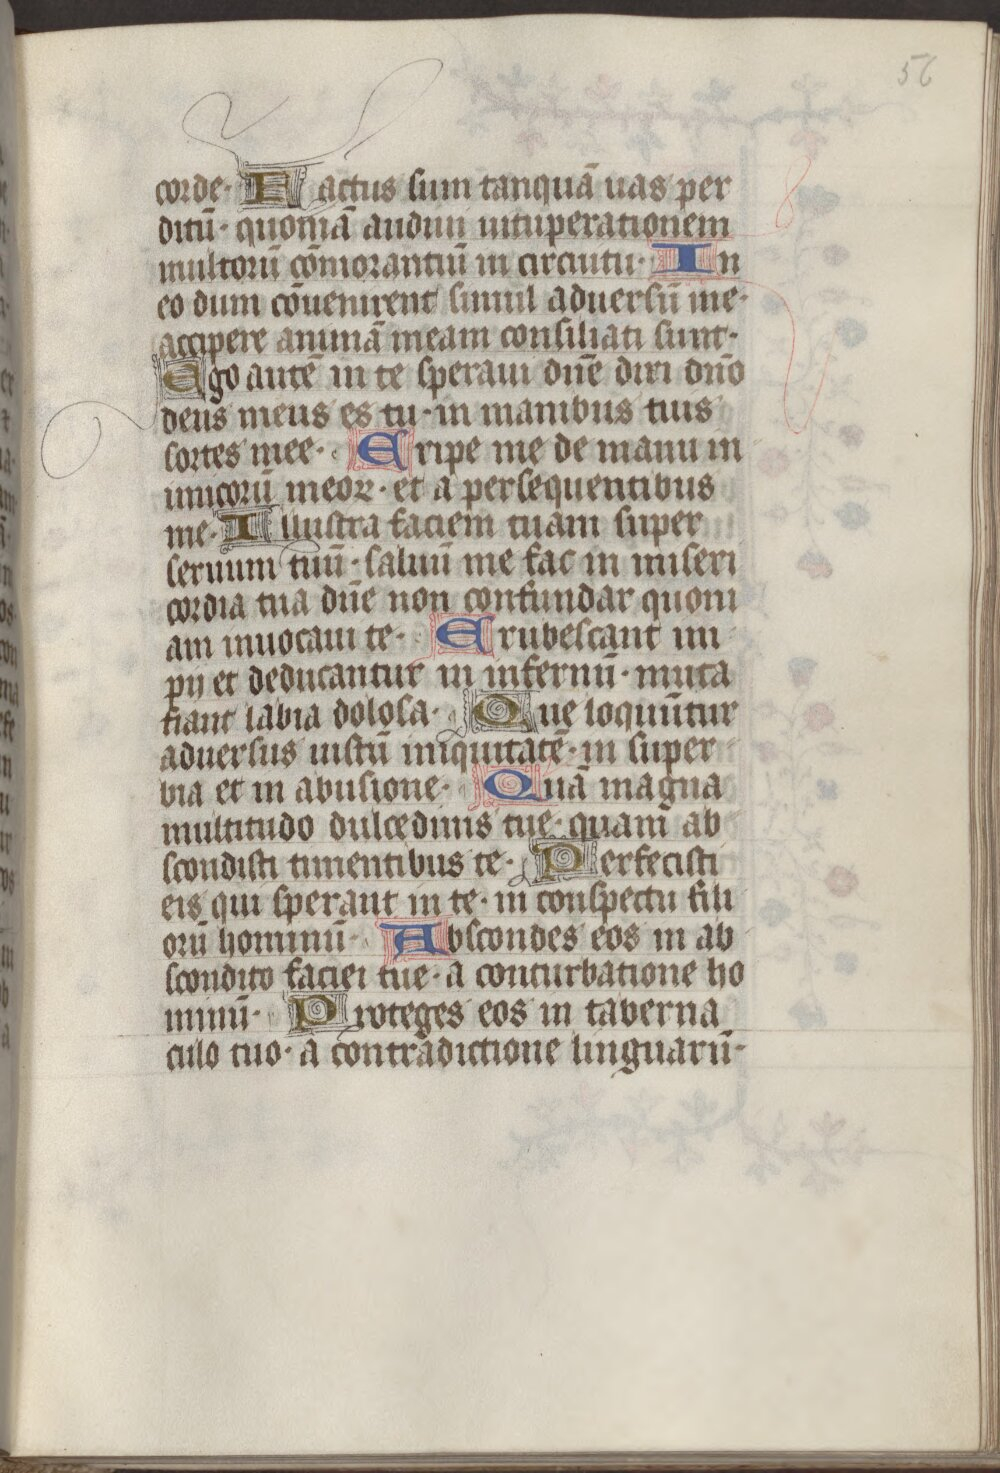 56
corde· Factus sum tanquã uas per
ditũ· quoniã audiui uituperationem
multorũ cõmorantiũ in circuitu· In
eo dum cõuenirent simul aduersũ me·
accipere animã meam consiliati sunt·
Ego autẽ in te speraui dñe dixi dño
deus meus es tu· in manibus tuis
sortes mee· Eripe me de manu in
imicorũ meoꝝ· et a persequentibus
me· Illustra faciem tuam super
seruum tuũ· saluũ me fac in miseri
cordia tua dñe non confundar quoni
am inuocaui te· Erubescant im
pij et deducantur in infernũ· muta
fiant labia dolosa· Que loquũtur
aduersus iustũ iniquitatẽ· in super
bia et in abusione· Quã magna
multitudo dulcedinis tue· quam ab
scondisti timentibus te· Perfecisti
eis qui sperant in te· in conspectu fili
orũ hominũ· Abscondes eos in ab
scondito faciei tue· a conturbatione ho
minũ· Proteges eos in taberna
culo tuo· a contradictione linguarũ·